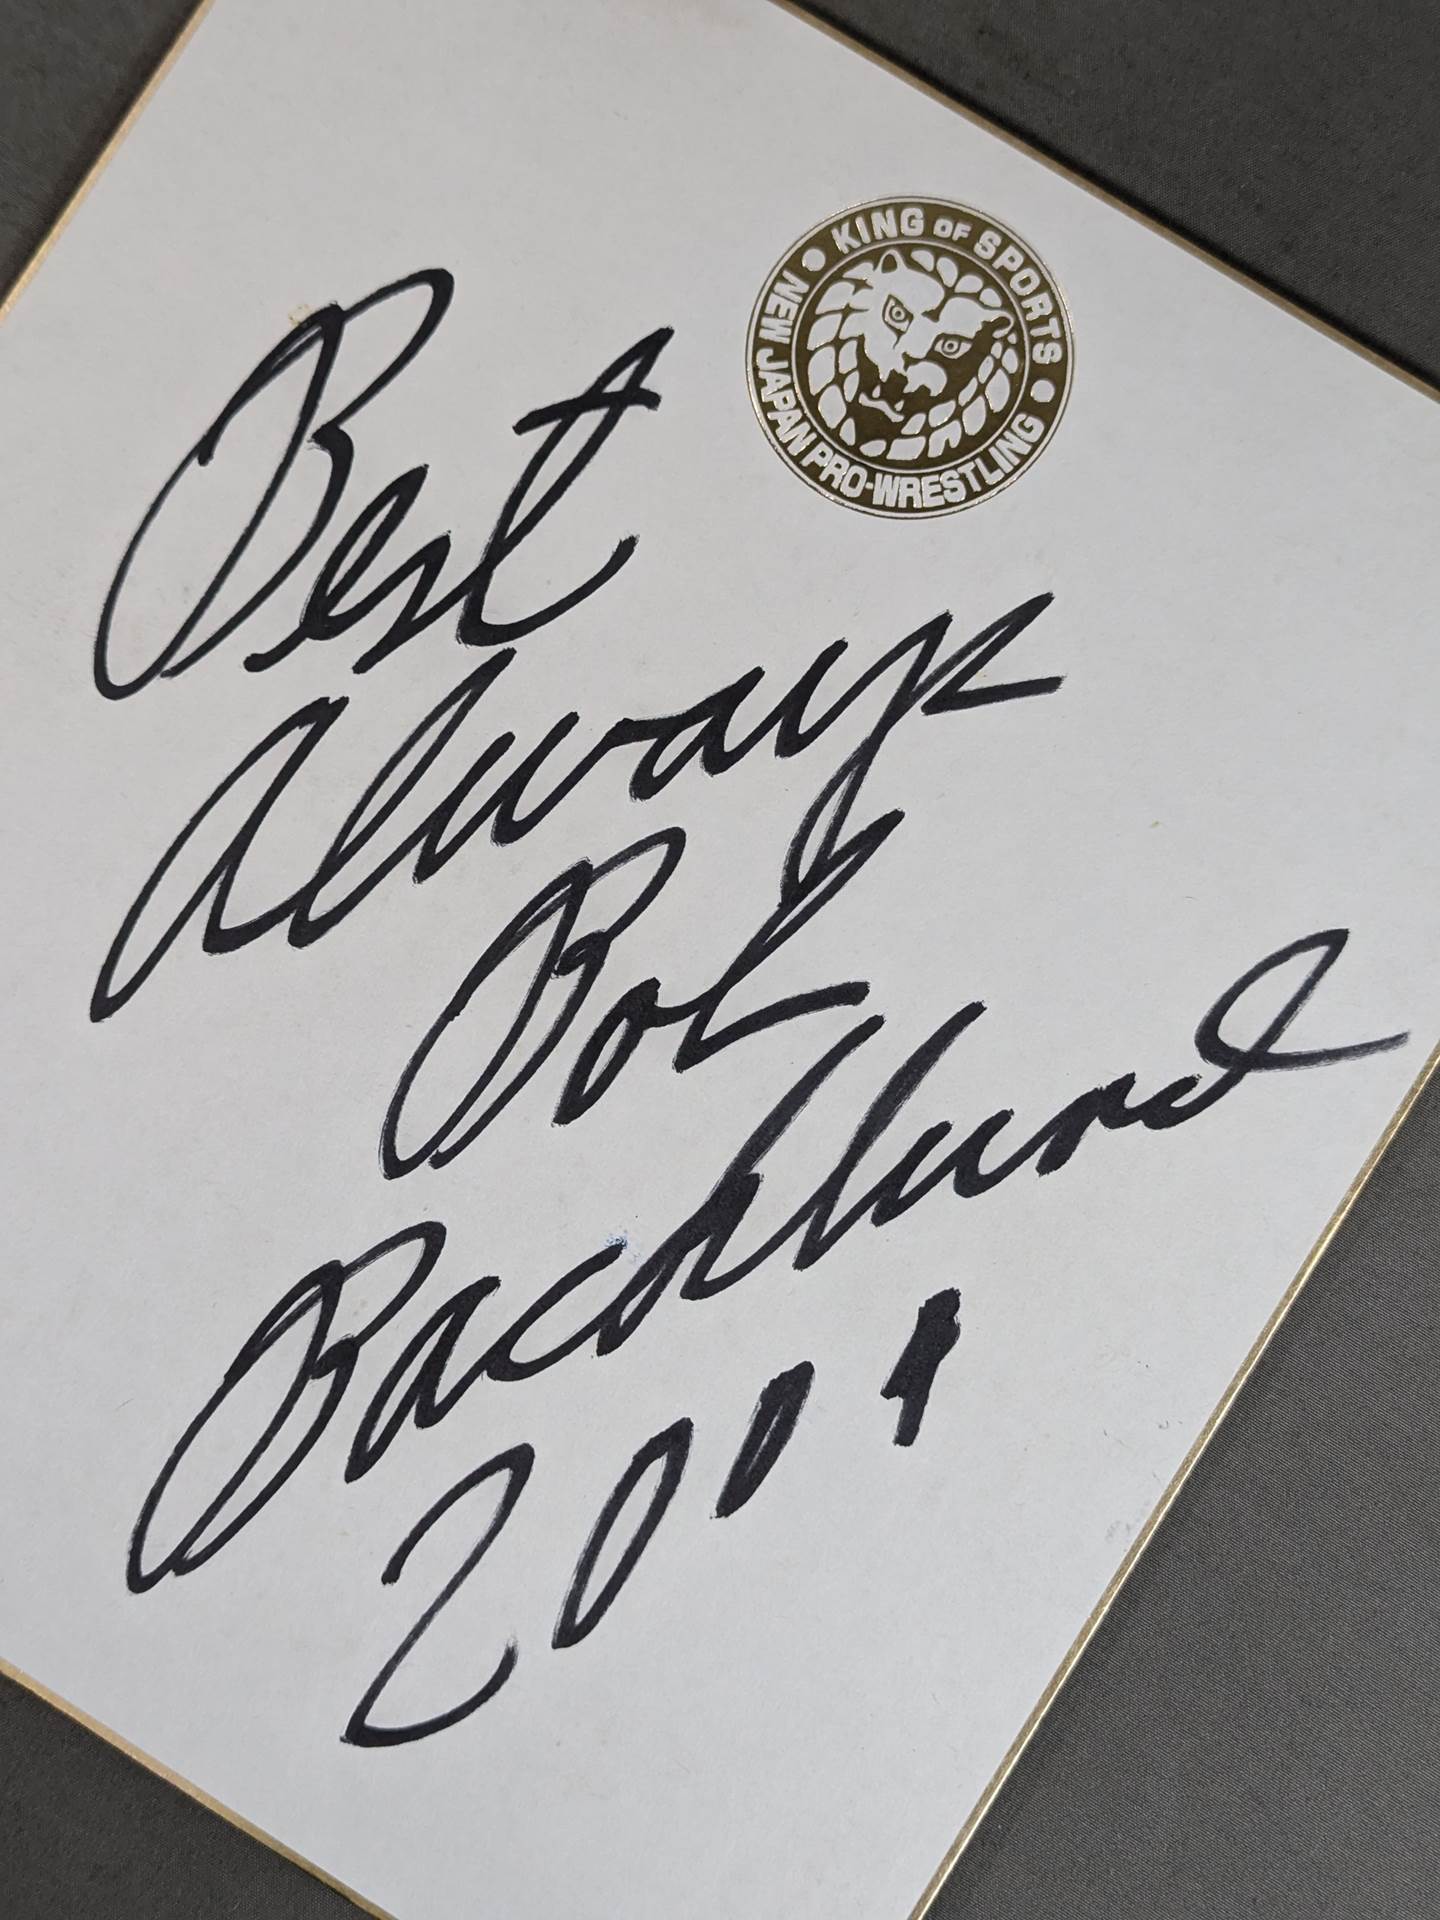 KING OF SPORTS
NEW JAPAN PRO-WRESTLING
Best
Always
Bob
Backlund
2009